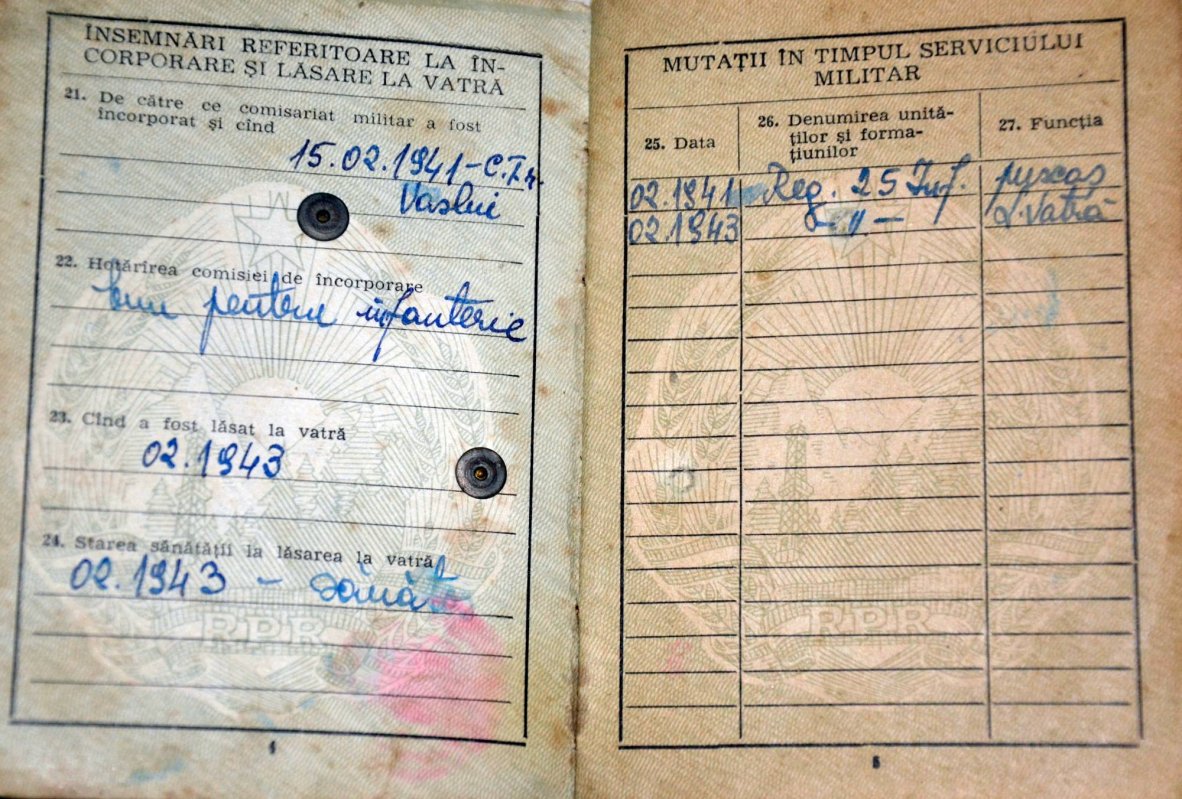 ÎNSEMNĂRI REFERITOARE LA ÎN-
CORPORARE ȘI LĂSARE LA VATRĂ
21. De către ce comisariat militar a fost
încorporat și cînd
15.02.1941 – C.T.r.
Vaslui
22. Hotărîrea comisiei de încorporare
bun pentru infanterie
23. Cînd a fost lăsat la vatră
02.1943
24. Starea sănătății la lăsarea la vatră
02.1943 – sănăt
RPR
4
MUTAȚII ÎN TIMPUL SERVICIULUI
MILITAR
25. Data
26. Denumirea unită-
ților și forma-
țiunilor
27. Funcția
02.1941 Reg. 25 Inf. pușcaș
02.1943 – " – L. Vatră
RPR
5